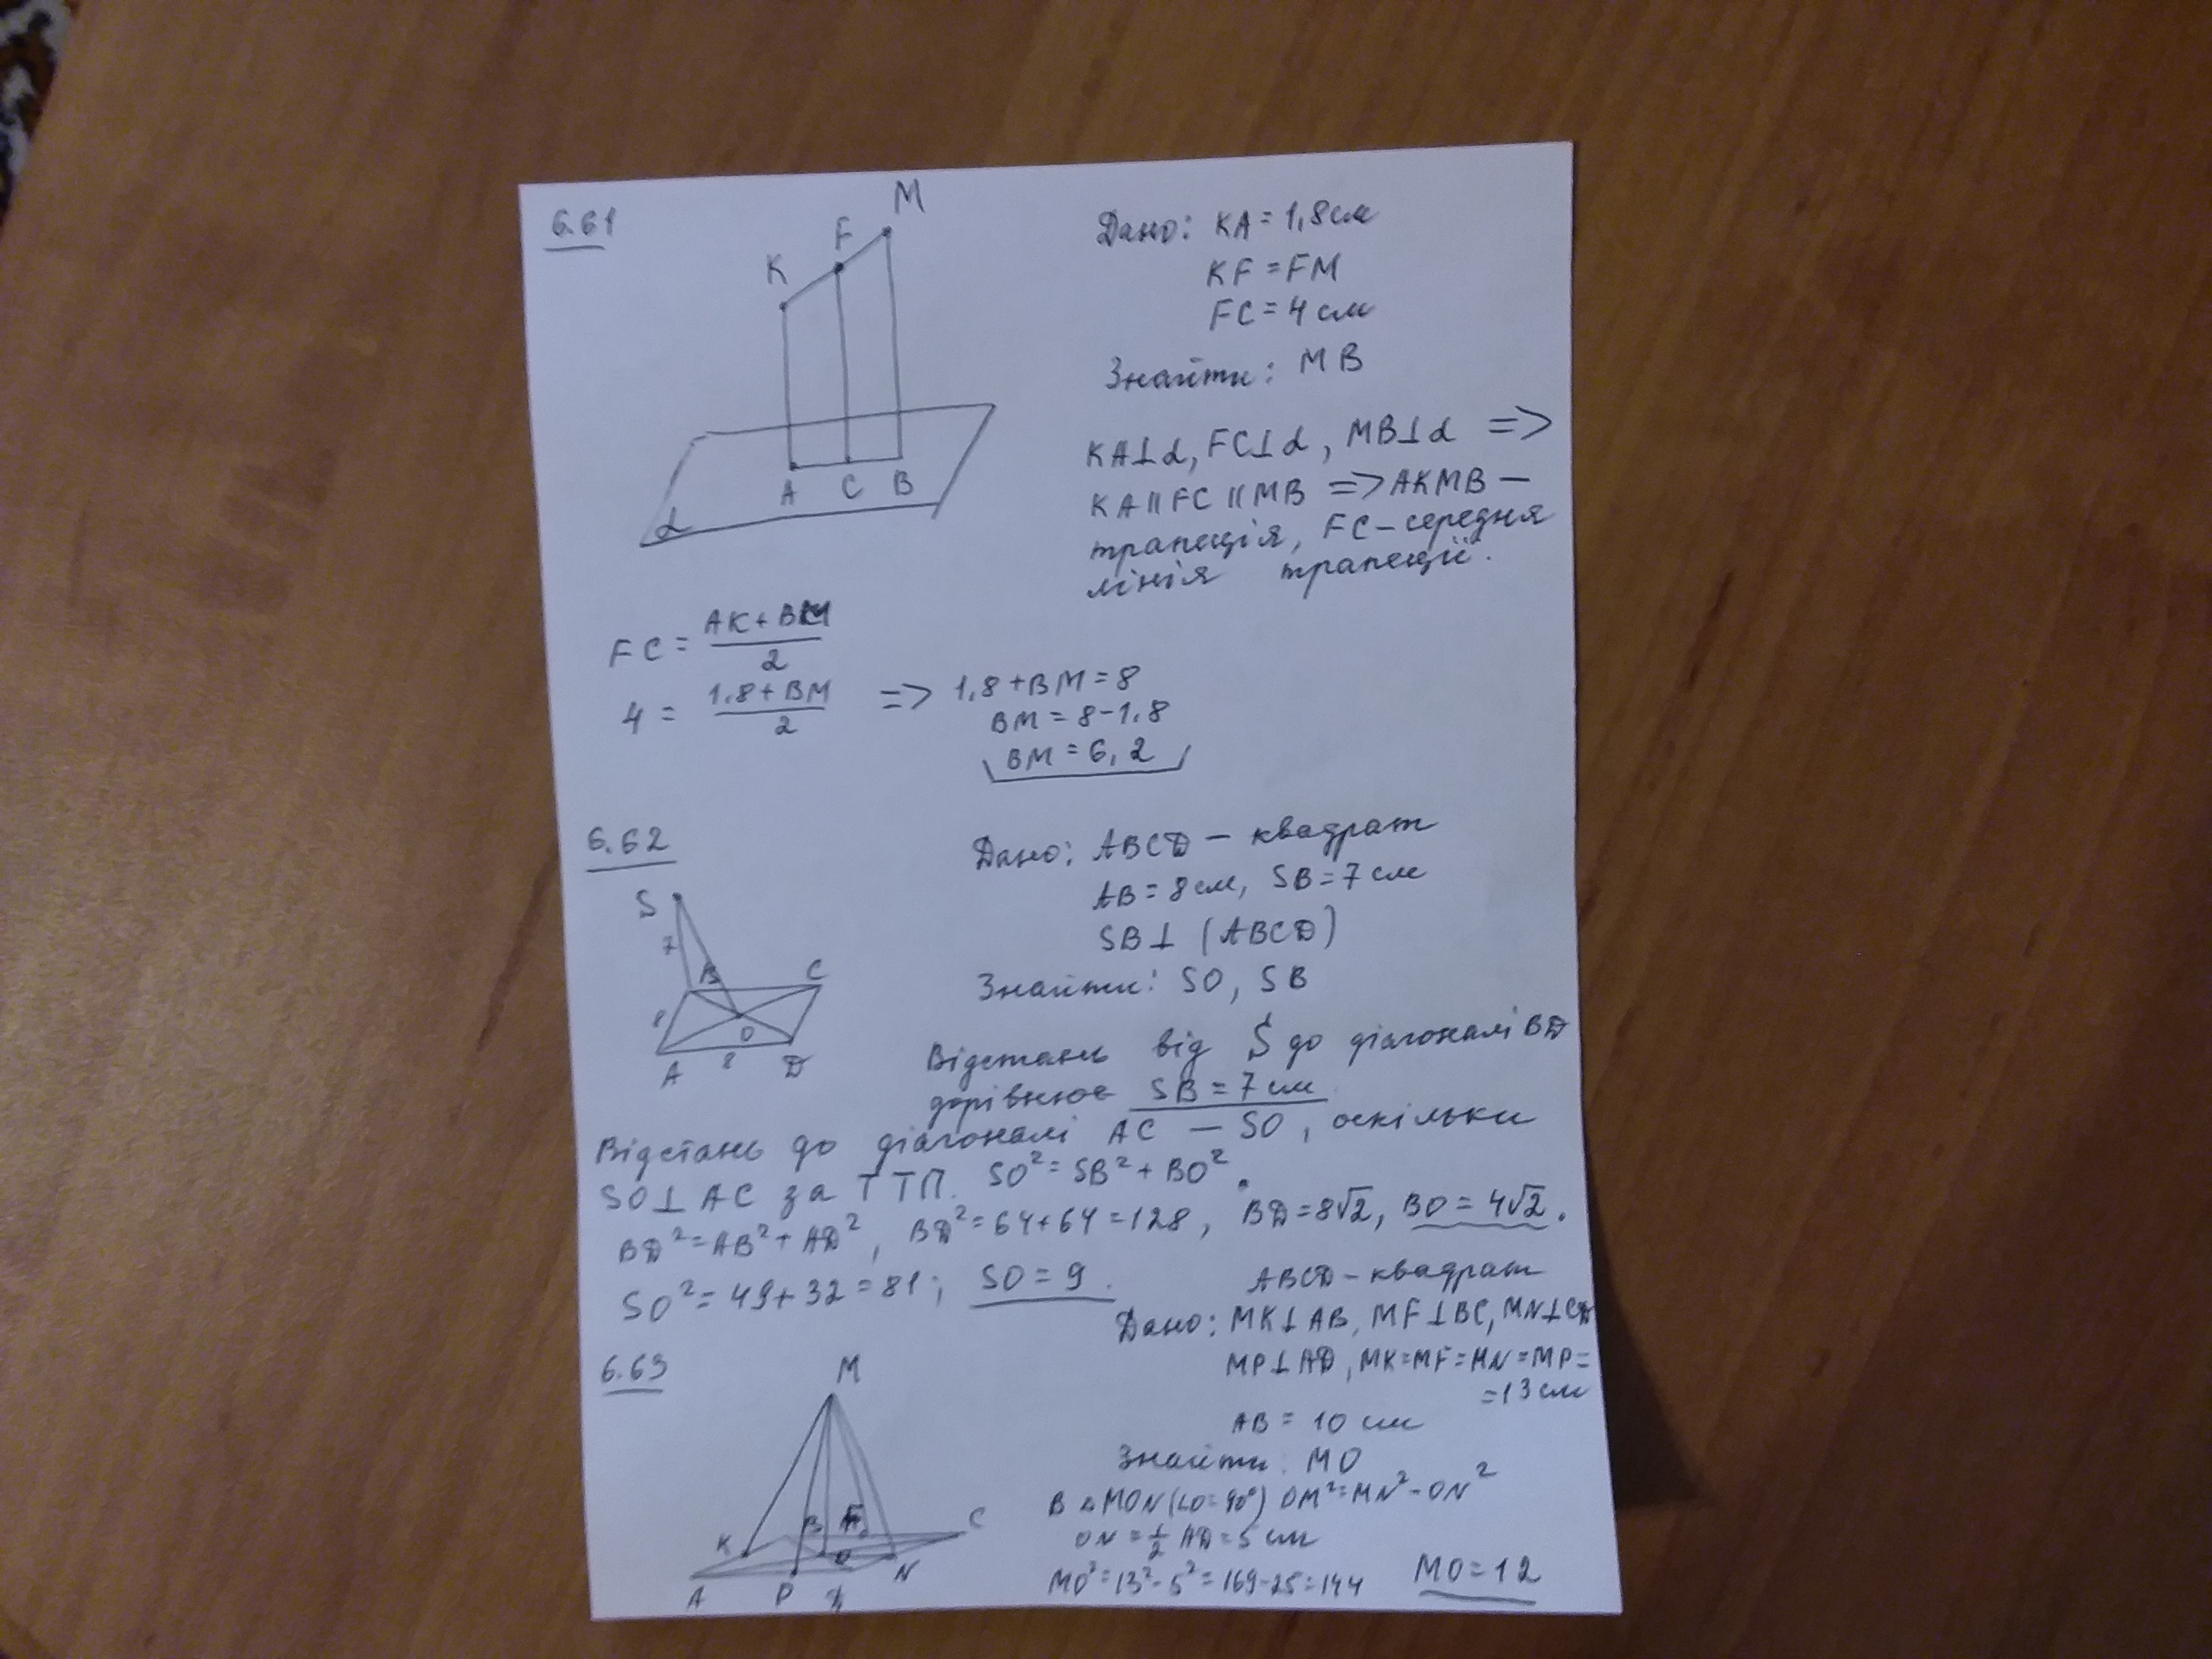 6.61
M
F
K
A C B
α
Дано: KA = 1,8 см
KF = FM
FC = 4 см
Знайти: MB
KA⊥α, FC⊥α, MB⊥α =>
KA || FC || MB => AKMB –
трапеція, FC – середня
лінія трапеції.
FC = (AK + BM)/2
4 = (1,8 + BM)/2 => 1,8 + BM = 8
BM = 8 – 1,8
BM = 6,2
6.62
S
7
B C
8
O
A 8 D
Дано: ABCD – квадрат
AB = 8 см, SB = 7 см
SB⊥ (ABCD)
Знайти: SO, SB
Відстань від S до діагоналі BD
дорівнює SB = 7 см
Відстань до діагоналі AC – SO, оскільки
SO⊥AC за ТТП. SO² = SB² + BO².
BD² = AB² + AD², BD² = 64 + 64 = 128, BD = 8√2, BO = 4√2.
SO² = 49 + 32 = 81; SO = 9.
6.63
M
K B F C
O N
A P
ABCD – квадрат
Дано: MK⊥AB, MF⊥BC, MN⊥CD
MP⊥AD, MK = MF = MN = MP =
= 13 см
AB = 10 см
Знайти: MO
В △MON (∠O = 90°) OM² = MN² – ON²
ON = ½ AD = 5 см
MO² = 13² – 5² = 169 – 25 = 144 MO = 12